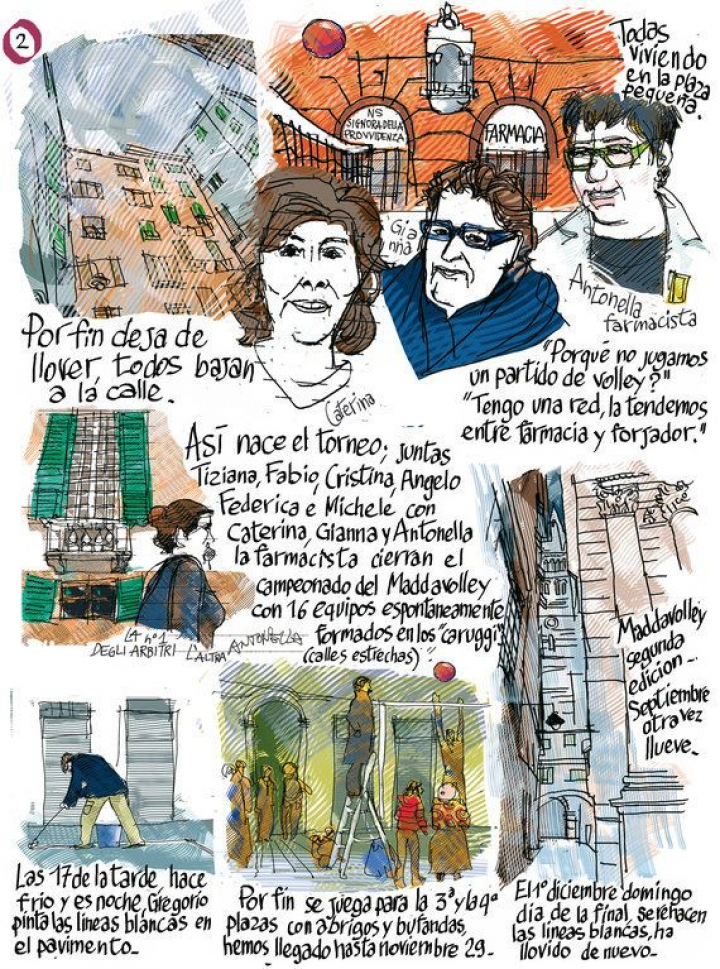 2
Por fin deja de
llover, todos bajan
a la calle.
NS
SIGNORA DELLA
PROVVIDENZA
FARMACIA
Todas
viviendo
en la plaza
pequeña.
Caterina
Gia
nna
Antonella
farmacista
"Porqué no jugamos
un partido de volley?"
"Tengo una red, la tendemos
entre farmacia y forjador."
Así nace el torneo; juntas
Tiziana, Fabio, Cristina, Angelo
Federica e Michele con
Caterina, Gianna y Antonella
la farmacista cierran el
campeonado del Maddavolley
con 16 equipos espontaneamente
formados en los "caruggi"
(calles estrechas)".
LA nº 1
DEGLI ARBITRI L'ALTRA ANTONELLA
Maddavolley
segunda
edicion...
Septiembre
otra vez
llueve.
Las 17 de la tarde, hace
frio y es noche, Gregorio
pinta las lineas blancas en
el pavimento.
Por fin se juega para la 3ª y la 4ª
plazas con abrigos y bufandas,
hemos llegado hasta noviembre 29.
El 1º diciembre domingo
dia de la final, se rehacen
las lineas blancas, ha
llovido de nuevo.